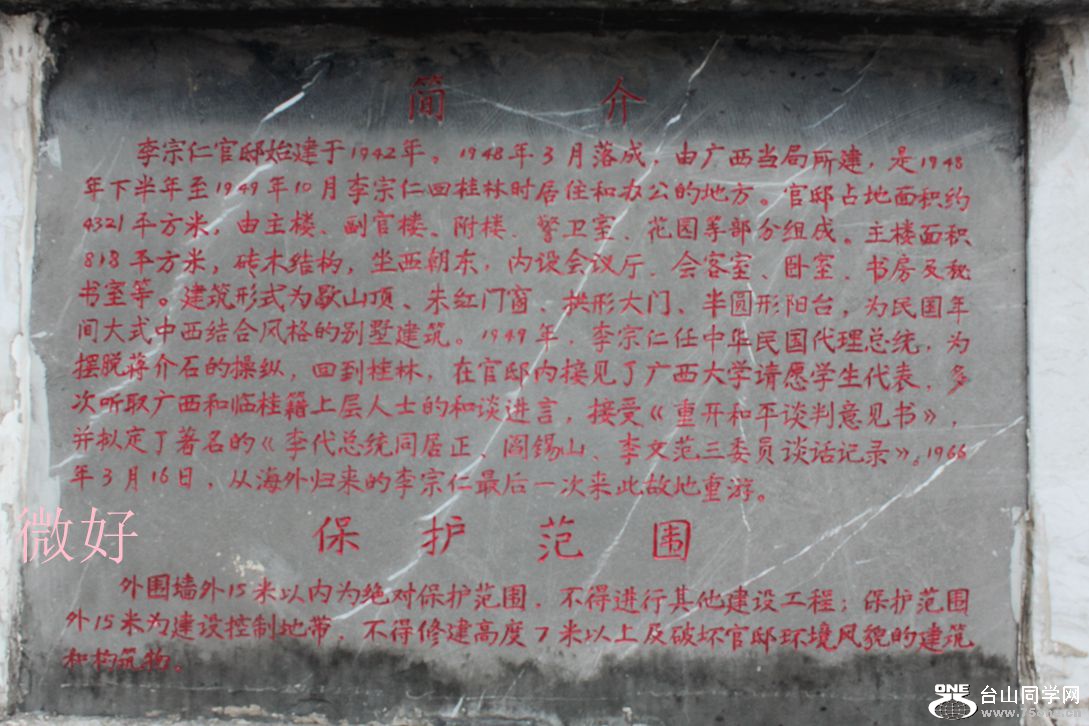 简 介
李宗仁官邸始建于1942年。1948年3月落成，由广西当局所建，是1948
年下半年至1949年10月李宗仁回桂林时居住和办公的地方。官邸占地面积约
4321平方米，由主楼、副官楼、附楼、警卫室、花园等部分组成。主楼面积
818平方米，砖木结构，坐西朝东，内设会议厅、会客室、卧室、书房及秘
书室等。建筑形式为歇山顶、朱红门窗、拱形大门、半圆形阳台，为民国年
间大式中西结合风格的别墅建筑。1949年，李宗仁任中华民国代理总统，为
摆脱蒋介石的操纵，回到桂林，在官邸内接见了广西大学请愿学生代表，多
次听取广西和临桂籍上层人士的和谈进言，接受《重开和平谈判意见书》，
并拟定了著名的《李代总统同居正、阎锡山、李文范三委员谈话记录》。1966
年3月16日，从海外归来的李宗仁最后一次来此故地重游。
保 护 范 围
外围墙外15米以内为绝对保护范围，不得进行其他建设工程；保护范围
外15米为建设控制地带，不得修建高度7米以上及破坏官邸环境风貌的建筑
和构筑物。
微好
ONE 台山同学网